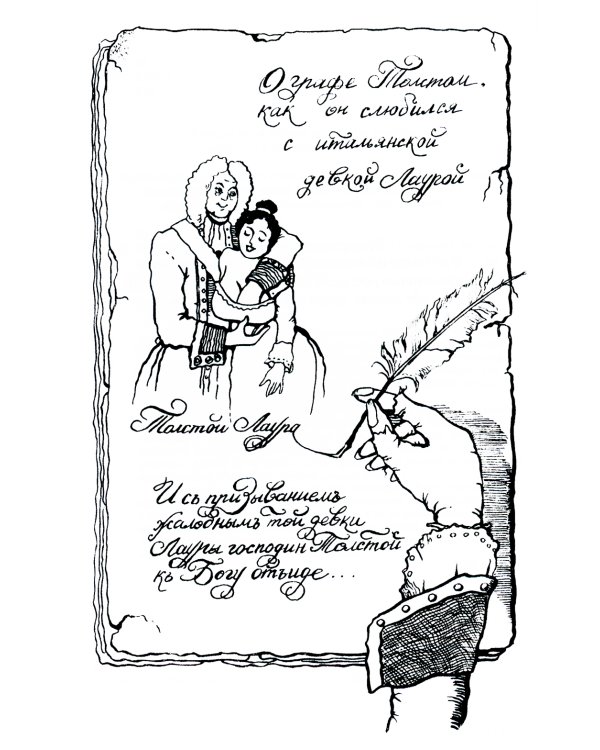 О графе Толстом,
как он слюбился
с итальянской
девкой Лаурой
Толстой Лаура
И съ призыванiемъ
жалобнымъ той девки
Лауры господин Толстой
къ Богу отъиде...